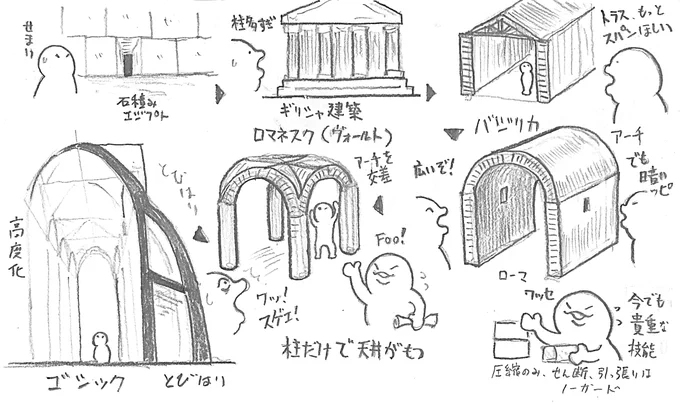 せまい
石積み
エジプト
柱多すぎ
ギリシャ建築
トラス、もっと
スパンほしい
バジリカ
アーチ
でも暗い
ッピ
ローマ
広いぞ!
ワッセ
今でも
貴重な
技能
圧縮のみ、せん断、引っ張りは
ノーガード
ロマネスク(ヴォールト)
アーチを
交差
Foo!
ワッ!
スゲェ!
柱だけで天井がもつ
とびはり
高度化
ゴシック
とびはり